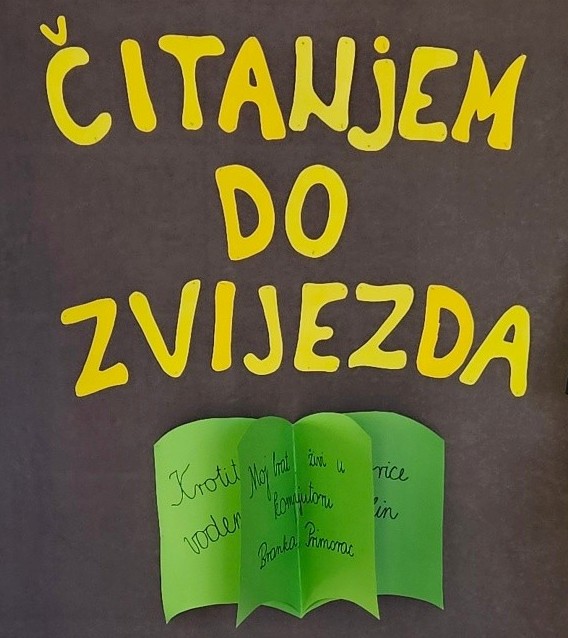 ČITANJEM
DO
ZVIJEZDA
Krotit
voden
Moj brat živi u
kompjutoru
Branka Primorac
rice
lin